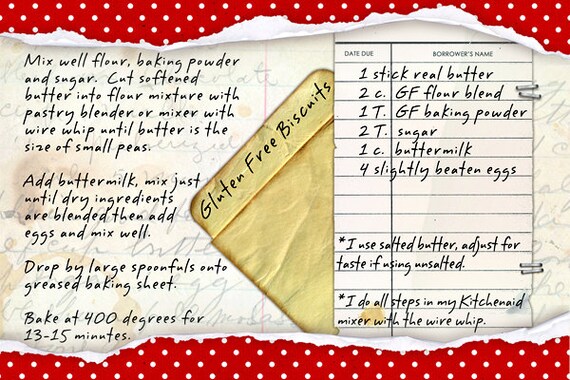 Mix well flour, baking powder
and sugar. Cut softened
butter into flour mixture with
pastry blender or mixer with
wire whip until butter is the
size of small peas.
Add buttermilk, mix just
until dry ingredients
are blended then add
eggs and mix well.
Drop by large spoonfuls onto
greased baking sheet.
Bake at 400 degrees for
13-15 minutes.
Gluten Free Biscuits
DATE DUE BORROWER'S NAME
1 stick real butter
2 c. GF flour blend
1 T. GF baking powder
2 T. sugar
1 c. buttermilk
4 slightly beaten eggs
*I use salted butter, adjust for
taste if using unsalted.
*I do all steps in my Kitchenaid
mixer with the wire whip.